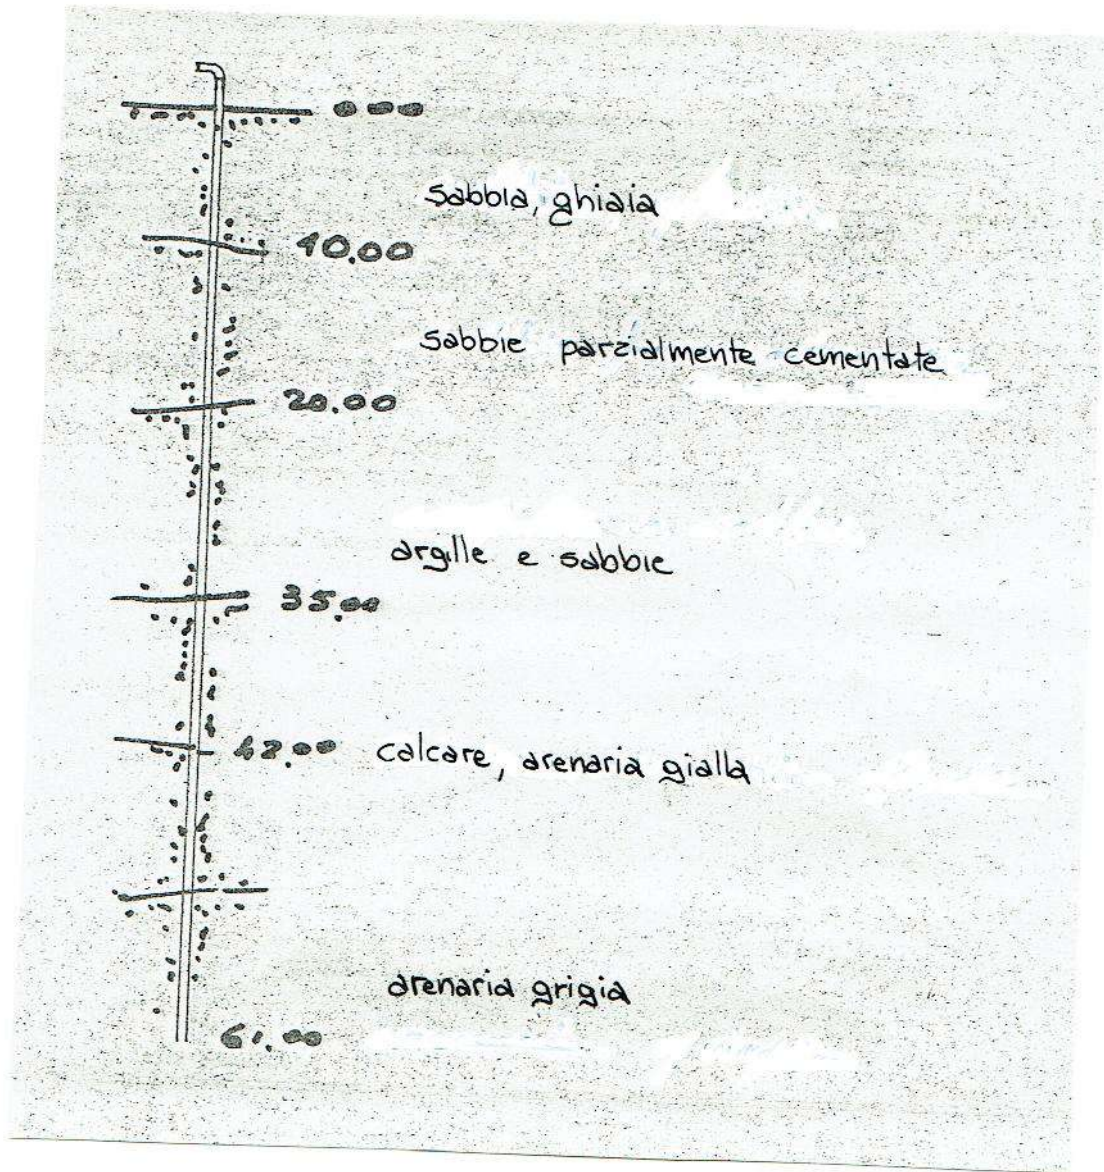 000
sabbia, ghiaia
10.00
sabbie parzialmente cementate
20.00
argille e sabbie
35.00
42.00 calcare, arenaria gialla
arenaria grigia
61.00